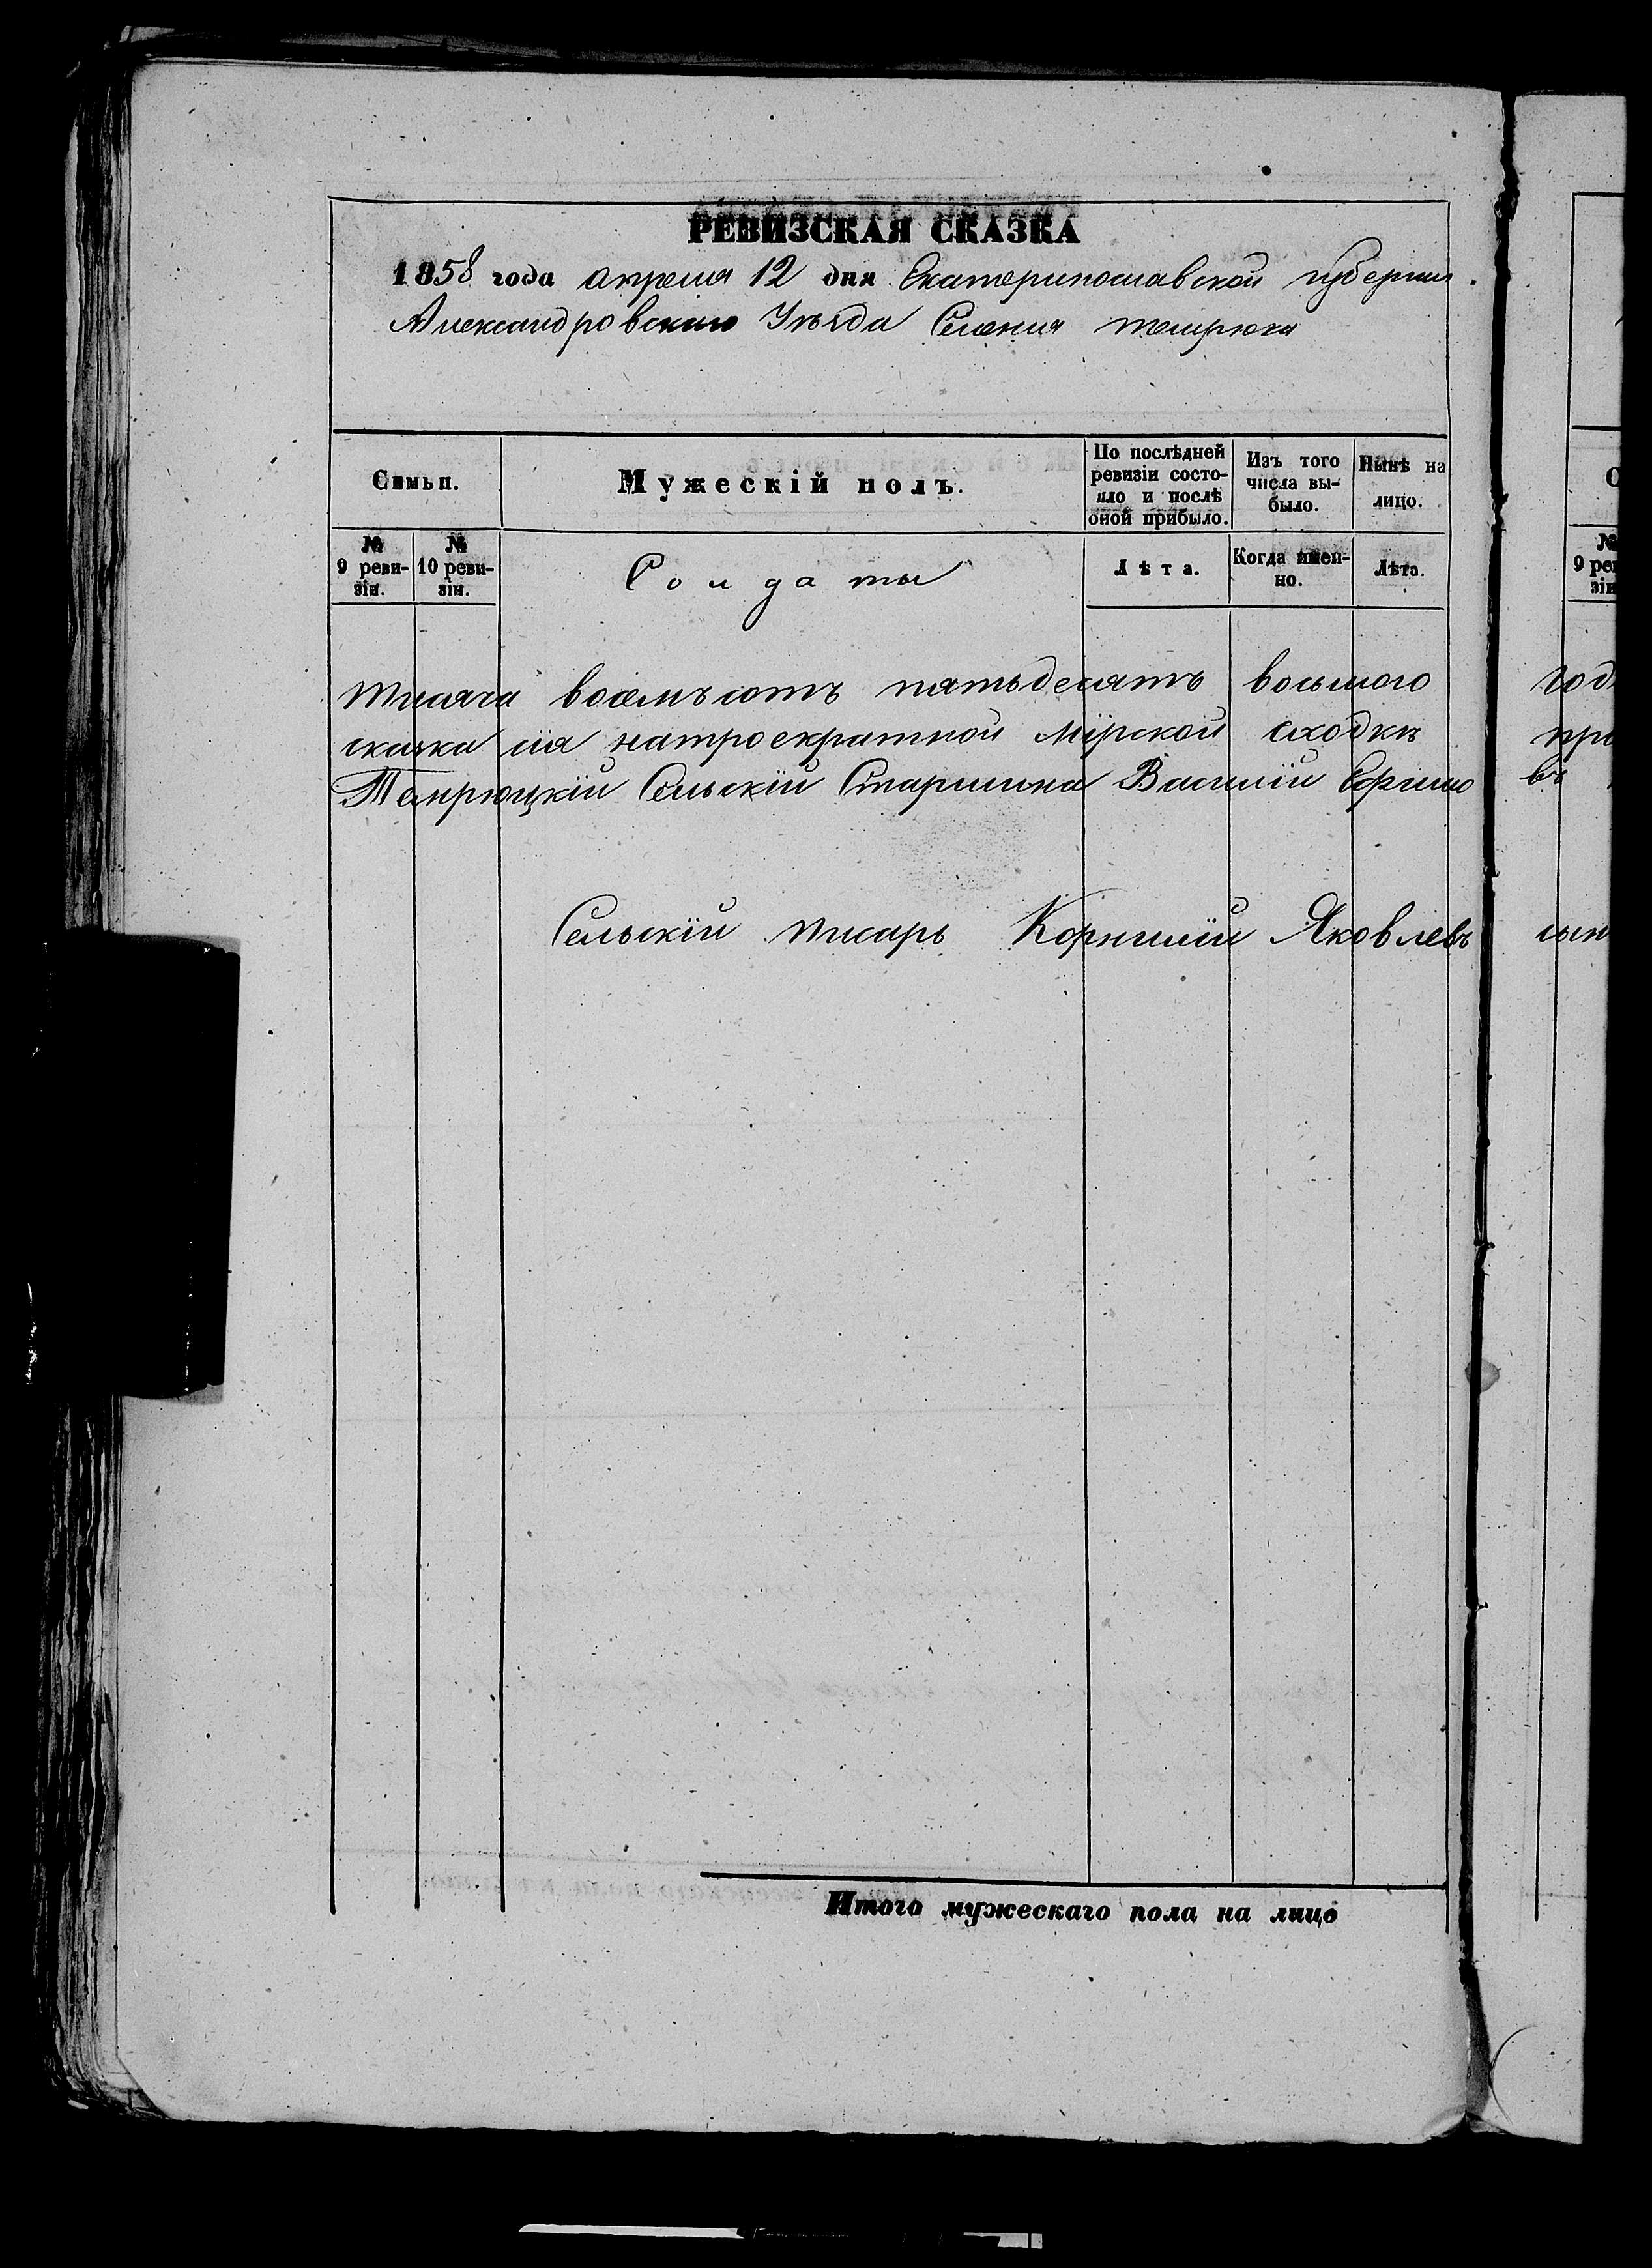 РЕВИЗСКАЯ СКАЗКА
1858 года апреля 12 дня Екатеринославской губернии
Александровского Уѣзда Селения темрюка
Семьи.
Мужескій полъ.
По послѣдней ревизіи состо-
яло и послѣ
оной прибыло.
Изъ того
числа вы-
было.
Нынѣ на
лицо.
№ 9 реви-
зіи.
№ 10 реви-
зіи.
Солдаты
Лѣта.
Когда имен-
но.
Лѣта.
тисяча восемъсотъ пятьдесятъ восьмого год
сказка сія натроекратной мірской сходкѣ про
Темрюцкій Сельскій Старшина Василій въ
Сельскій писарь Корнилій Яковлевъ сын
Итого мужескаго пола на лицо
№
9 рев
зіи